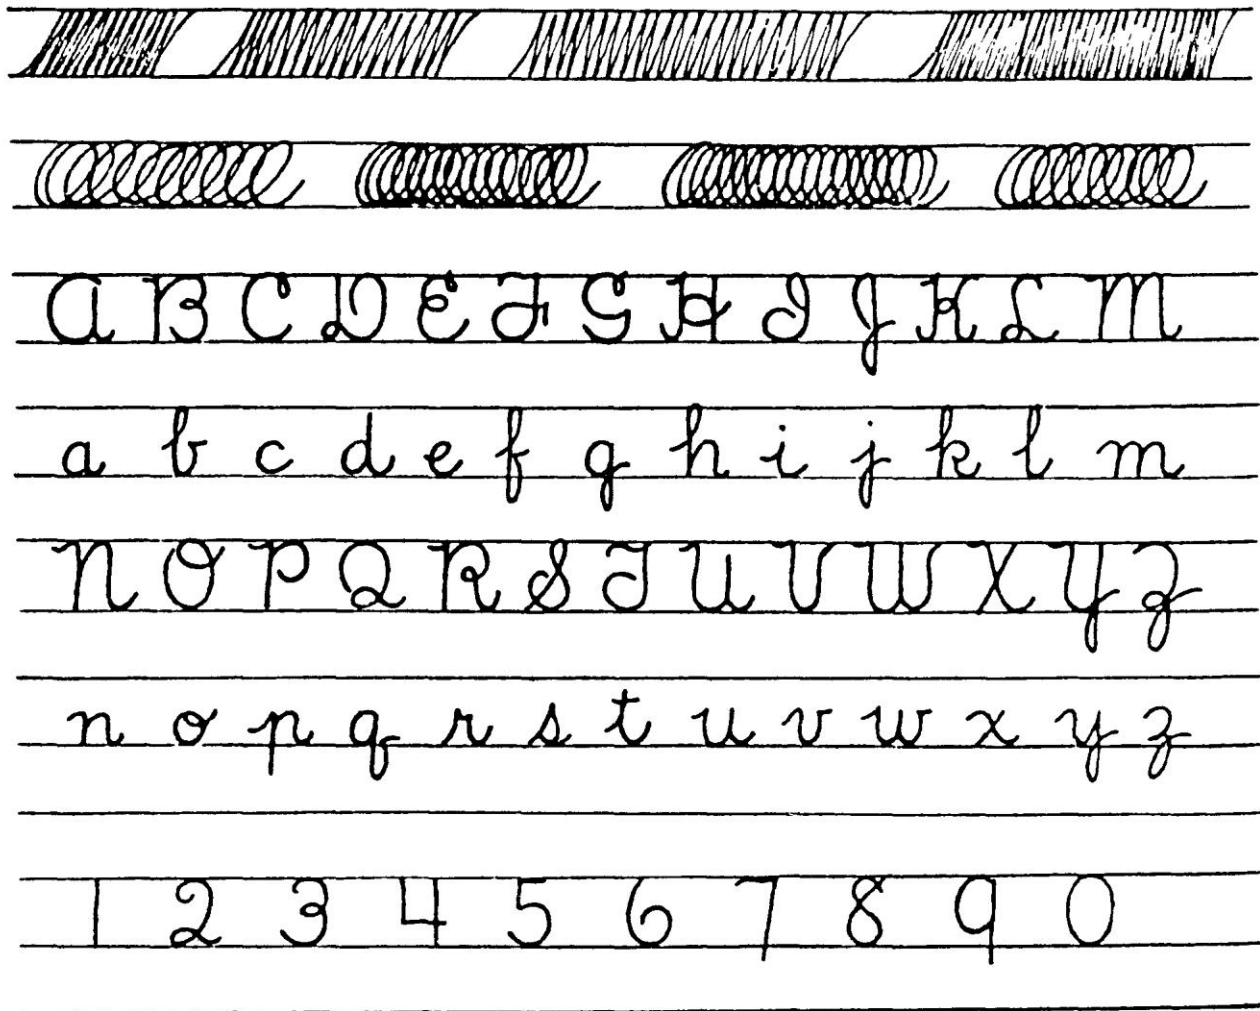 A B C D E F G H I J K L M
a b c d e f g h i j k l m
N O P Q R S T U V W X Y Z
n o p q r s t u v w x y z
1 2 3 4 5 6 7 8 9 0